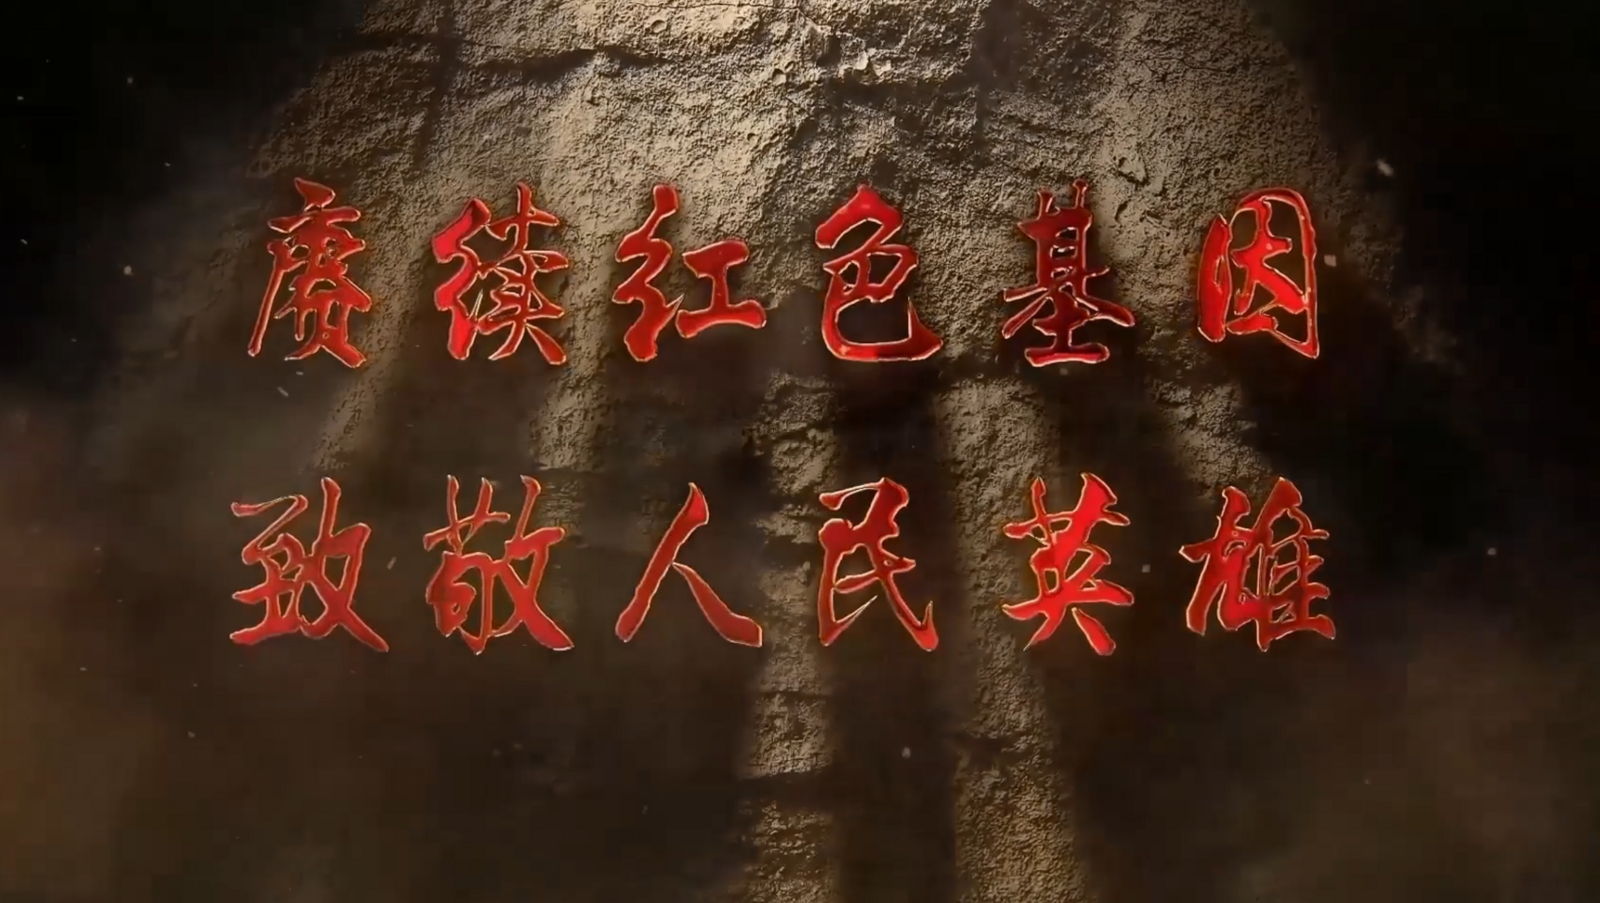 赓续红色基因
致敬人民英雄